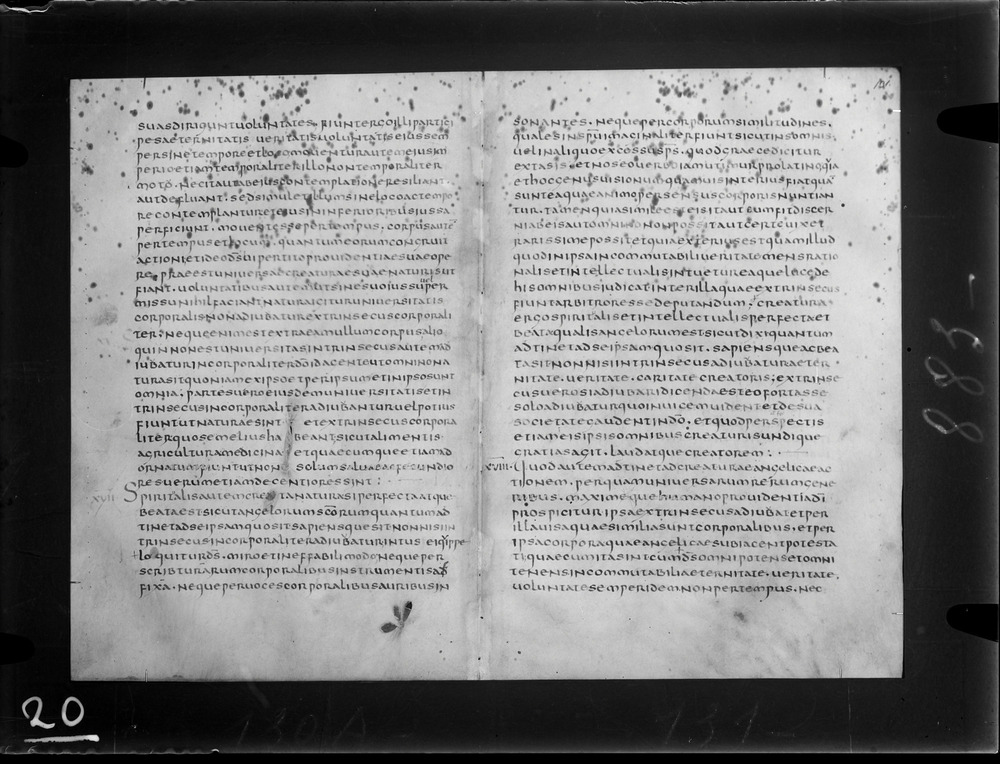 suas dirigunt uoluntates. fiunt ergo illi partici
pes aeternitatis ueritatis uoluntatis eius sem
per sine tempore et loco mouentur autem eius im
perio etiam temporaliter illo non temporaliter
moto. nec ita ut ab eius contemplatione resiliant
aut defluant. sed simul et illum sine loco ac tempo
re contemplantur eius in inferioribus iussa
perficiunt. mouentes se per tempus. corpus aute
per tempus et locum. quantum eorum congruit
actioni et ideo ds bipertito prouidentiae suae ope
re. praeest uniuersae creaturae suae naturis ut
fiant. uoluntatibus autem ut sine suo iussu uel per
missu nihil faciant natura igitur uniuersitatis
corporalis non adiubatur extrinsecus corporali
ter. neque enim est extra eam ullum corpus alio
quin non est uniuersitas intrinsecus autem ad
iubatur incorporaliter do id agente ut omnino na
tura sit quoniam ex ipso et per ipsum et in ipso sunt
omnia. partes uero eiusdem uniuersitatis et in
trinsecus incorporaliter adiubantur uel potius
fiunt ut naturae sint et extrinsecus corpora
liter quo se melius habeant sicut alimentis
agricultura medicina et quaecumque etiam ad
ornatum fiunt ut non solum saluae ac fecundio
res uerum etiam decentiores sint:
xvii Spiritalis autem creata natura si perfecta atque
beata est sicut angelorum scorum quantum ad
tinet ad se ipsam quo sit sapiensque sit non nisi in
trinsecus incorporaliter adiubatur intus ei quippe
loquitur ds. miro et ineffabili modo neque per
scribturarum corporalibus instrumentis ad
fixam. neque per uoces corporalibus auribus in
sonantes. neque per corporum similitudines.
quales in spu imaginaliter fiunt sicut in somnis.
uel in aliquo excessu sps. quod graece dicitur
extasis et nos eo uerbo iam utimur pro latino quia
et hoc genus uisionum quamuis interius fiat qua
sunt ea quae animo per sensus corporis nuntian
tur. tamen quia simile est eis ita ut cum fit discer
ni ab eis aut omnino non possit aut certe uix et
rarissime possit et quia exterius est quam illud
quod in ipsa incommutabili ueritate mens ratio
nalis et intellectualis intuetur eaque luce de
his omnibus iudicat inter illa quae extrinsecus
fiunt arbitror esse deputandum. creatura
ergo spiritalis et intellectualis perfecta et
beata qualis angelorum est sicut dixi quantum
adtinet ad se ipsam quo sit. sapiensque ac bea
ta sit non nisi intrinsecus adiubatur aeter
nitate. ueritate. caritate creatoris. extrinse
cus uero si adiubari dicenda est eo fortasse
solo adiubatur quo inuicem uident et de sua
societate gaudent in do. et quod perspectis
etiam eis ipsis omnibus creaturis undique
gratias agit. laudatque creatorem:
xviii Quod autem adtinet ad creaturae angelicae ac
tionem. per quam uniuersarum rerum gene
ribus. maximeque humano prouidentia di
prospicitur ipsa extrinsecus adiubat et per
illa uisa quae similia sunt corporalibus. et per
ipsa corpora quae angelicae subiacent potesta
ti quae cum ita sint cum ds omnipotens et omni
tenens incommutabili aeternitate. ueritate.
uoluntate semper idem non per tempus. nec
20
883